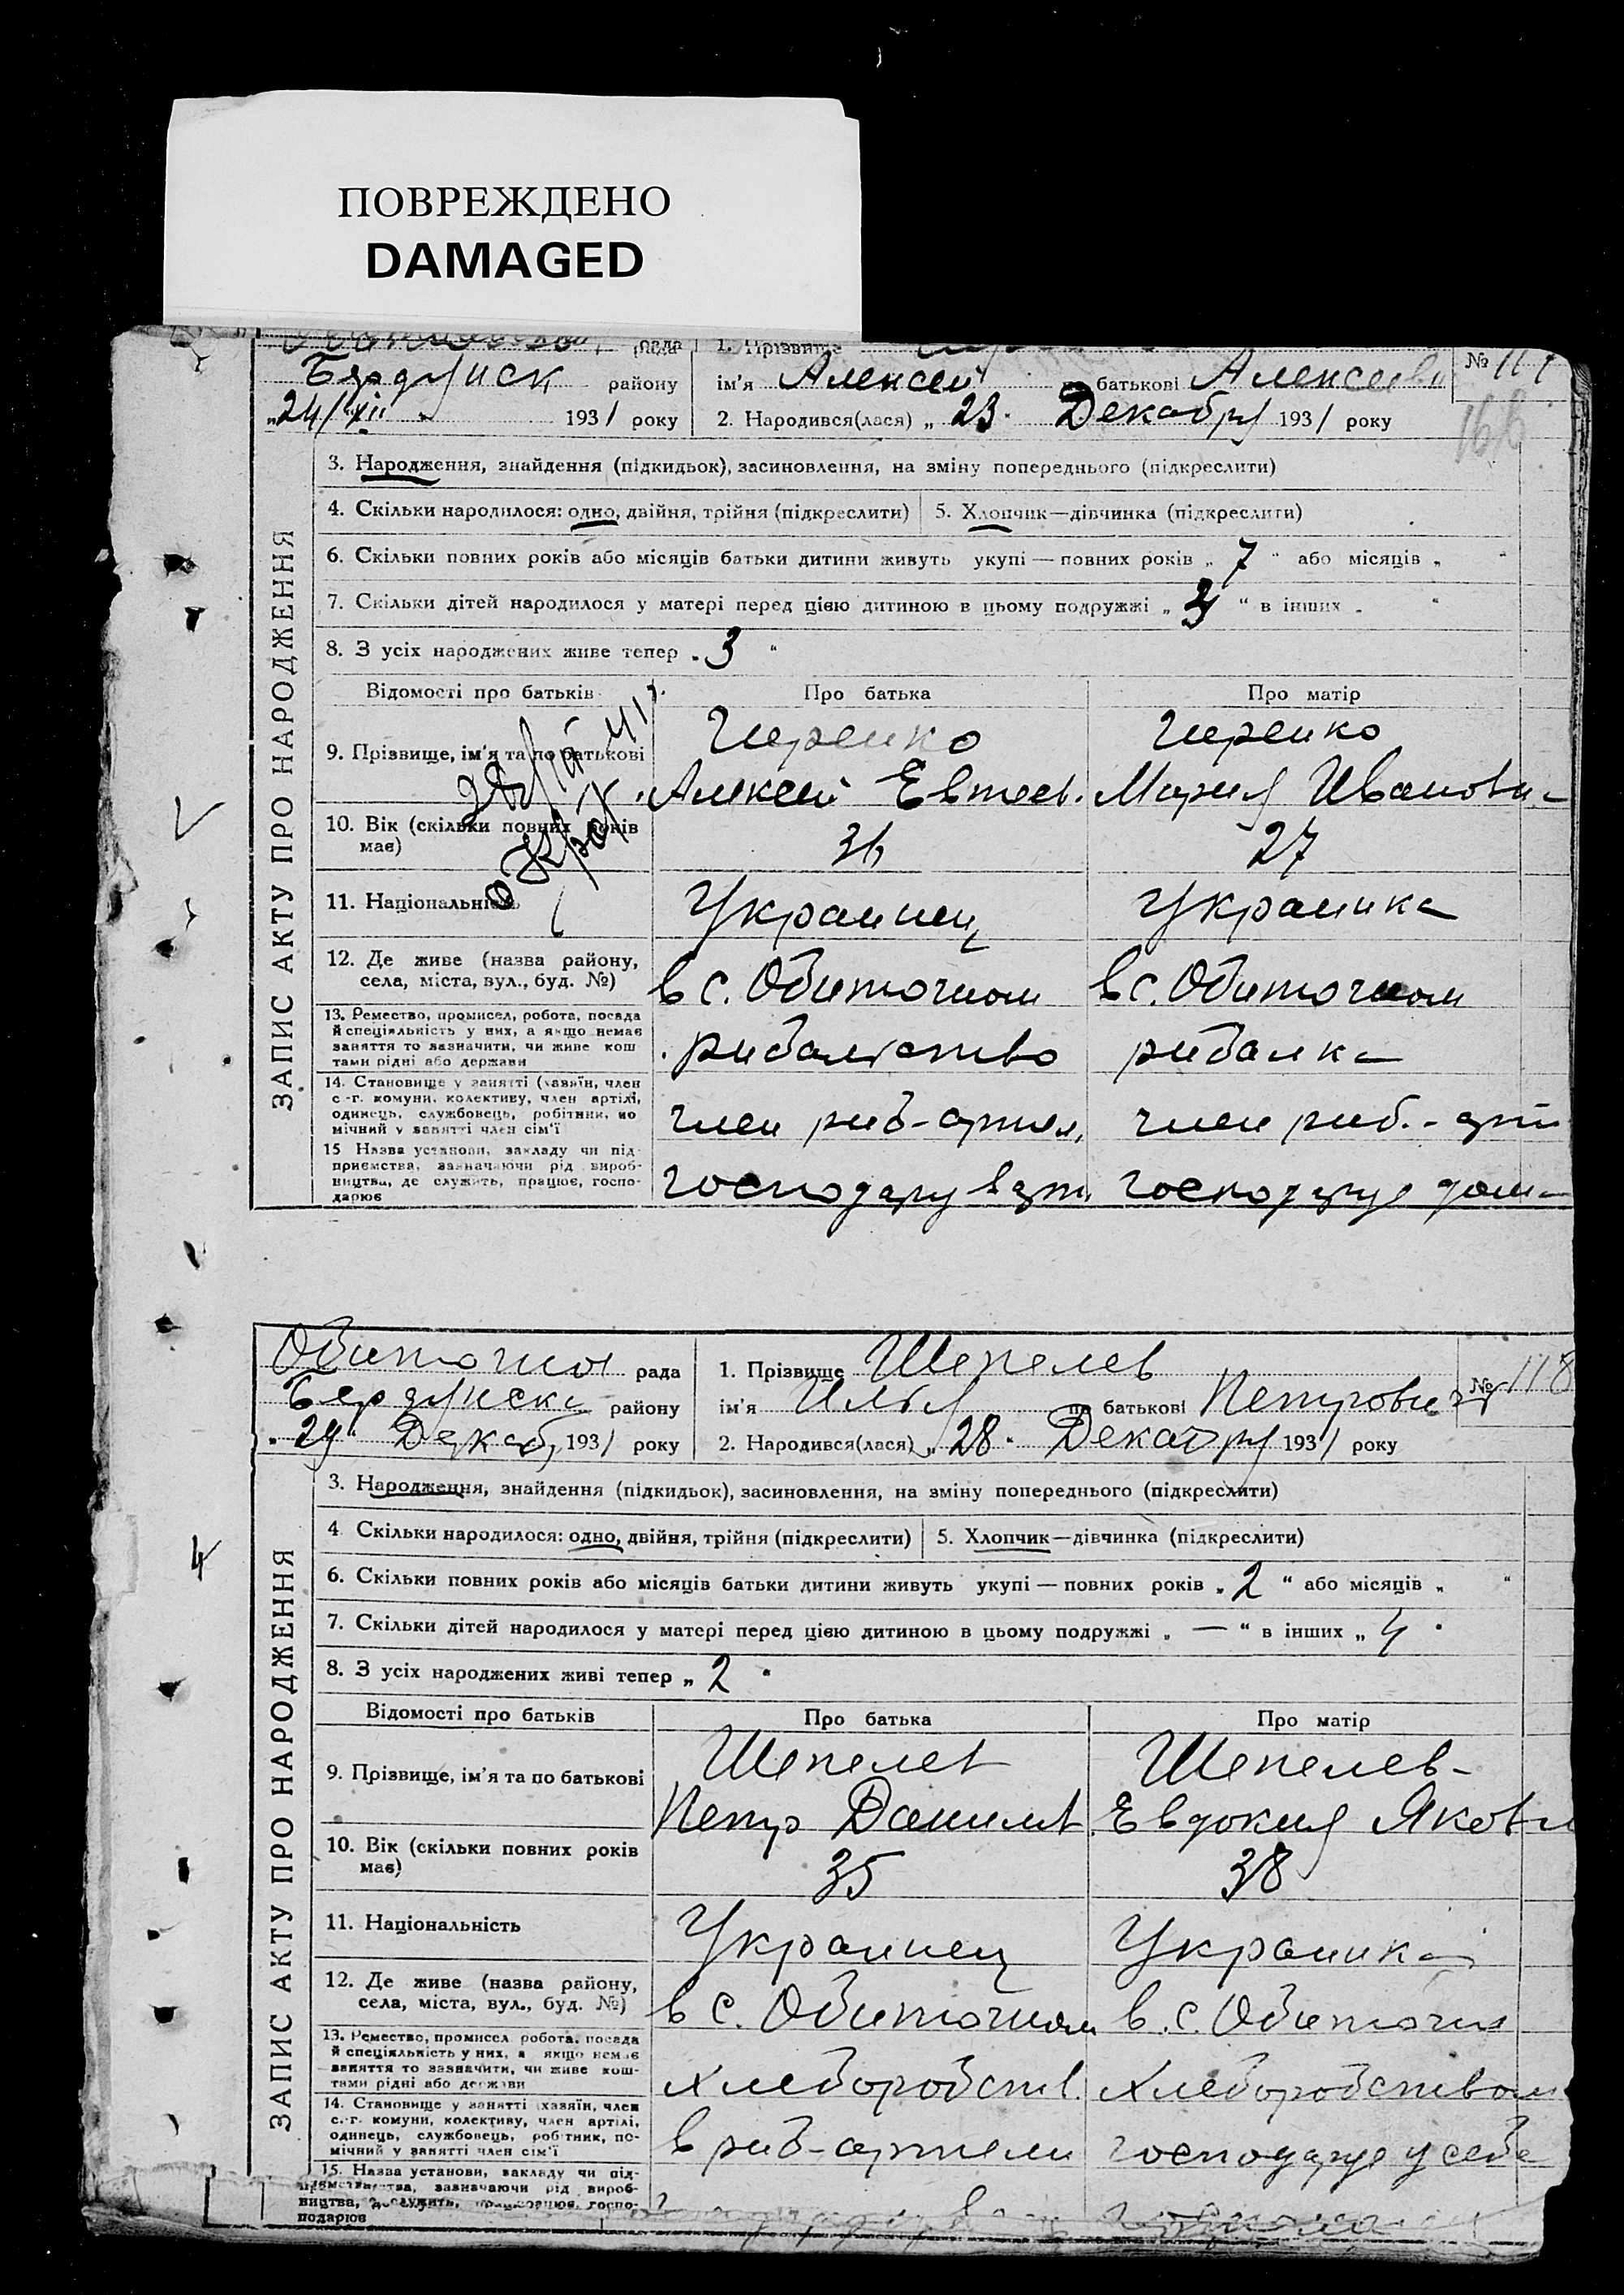 ПОВРЕЖДЕНО
DAMAGED
рада 1. Прізвище
Бердянск району ім'я Алексей по батькові Алексеевич № 117
„24/XII 1931 року 2. Народився(лася) „23 Декабря 1931 року
ЗАПИС АКТУ ПРО НАРОДЖЕННЯ
3. Народження, знайдення (підкидьок), засиновлення, на зміну попереднього (підкреслити)
4. Скільки народилося: одно, двійня, трійня (підкреслити) 5. Хлопчик—дівчинка (підкреслити)
6. Скільки повних років або місяців батьки дитини живуть укупі — повних років „ 7 “ або місяців „ “
7. Скільки дітей народилося у матері перед цією дитиною в цьому подружжі „ “ в інших „ “
8. З усіх народжених живе тепер „ 3 “
Відомості про батьків Про батька Про матір
9. Прізвище, ім'я та по батькові
Алексей Евтеев. Мария Иванови-
10. Вік (скільки повних років 36 27
має)
11. Національність Украинец Украинка
12. Де живе (назва району,
села, міста, вул., буд. №) в с. Обиточном в с. Обиточном
13. Ремество, промисел, робота, посада
й спеціяльність у них, а якщо немає
заняття то зазначити, чи живе кош
тами рідні або держави
рибальство рибалка
14. Становище у занятті (хазяїн, член
с.-г. комуни, колективу, член артілі,
одинець, службовець, робітник, по
мічний у занятті член сім'ї
член риб-артел. член риб.-арт
15 Назва установи, закладу чи під
приємства, зазначаючи рід вироб-
ництва, де служить, працює, госпо-
дарює
господарує дома
Обиточна рада 1. Прізвище Шепелев № 118
Бердянска району ім'я Илья по батькові Петрович
„29“ Декаб, 1931 року 2. Народився(лася) „28“ Декабря 1931 року
ЗАПИС АКТУ ПРО НАРОДЖЕННЯ
3. Народження, знайдення (підкидьок), засиновлення, на зміну попереднього (підкреслити)
4 Скільки народилося: одно, двійня, трійня (підкреслити) 5. Хлопчик—дівчинка (підкреслити)
6. Скільки повних років або місяців батьки дитини живуть укупі — повних років „ 2 “ або місяців „ “
7. Скільки дітей народилося у матері перед цією дитиною в цьому подружжі „ — “ в інших „ 4 “
8. З усіх народжених живі тепер „ 2 “
Відомості про батьків Про батька Про матір
Шепелев Шепелев-
9. Прізвище, ім'я та по батькові
Петр Данилов Евдокия Якови
10. Вік (скільки повних років 35 38
має)
11. Національність Украинец Украинка
12. Де живе (назва району,
села, міста, вул., буд. №) в с. Обиточном в. с. Обиточн
13. Ремество, промисел робота, посада
й спеціяльність у них, а якщо немає
заняття то зазначити, чи живе кош-
тами рідні або держави
Хлеборобств. Хлеборобством
14. Становище у занятті (хазяїн, член
с.-г. комуни, колективу, член артілі,
одинець, службовець, робітник, по-
мічний у занятті член сім'ї
в риб-артели господарує у себе
15. Назва установи, закладу чи під-
приємства, зазначаючи рід вироб-
ництва, де служить, працює, госпо-
подарює